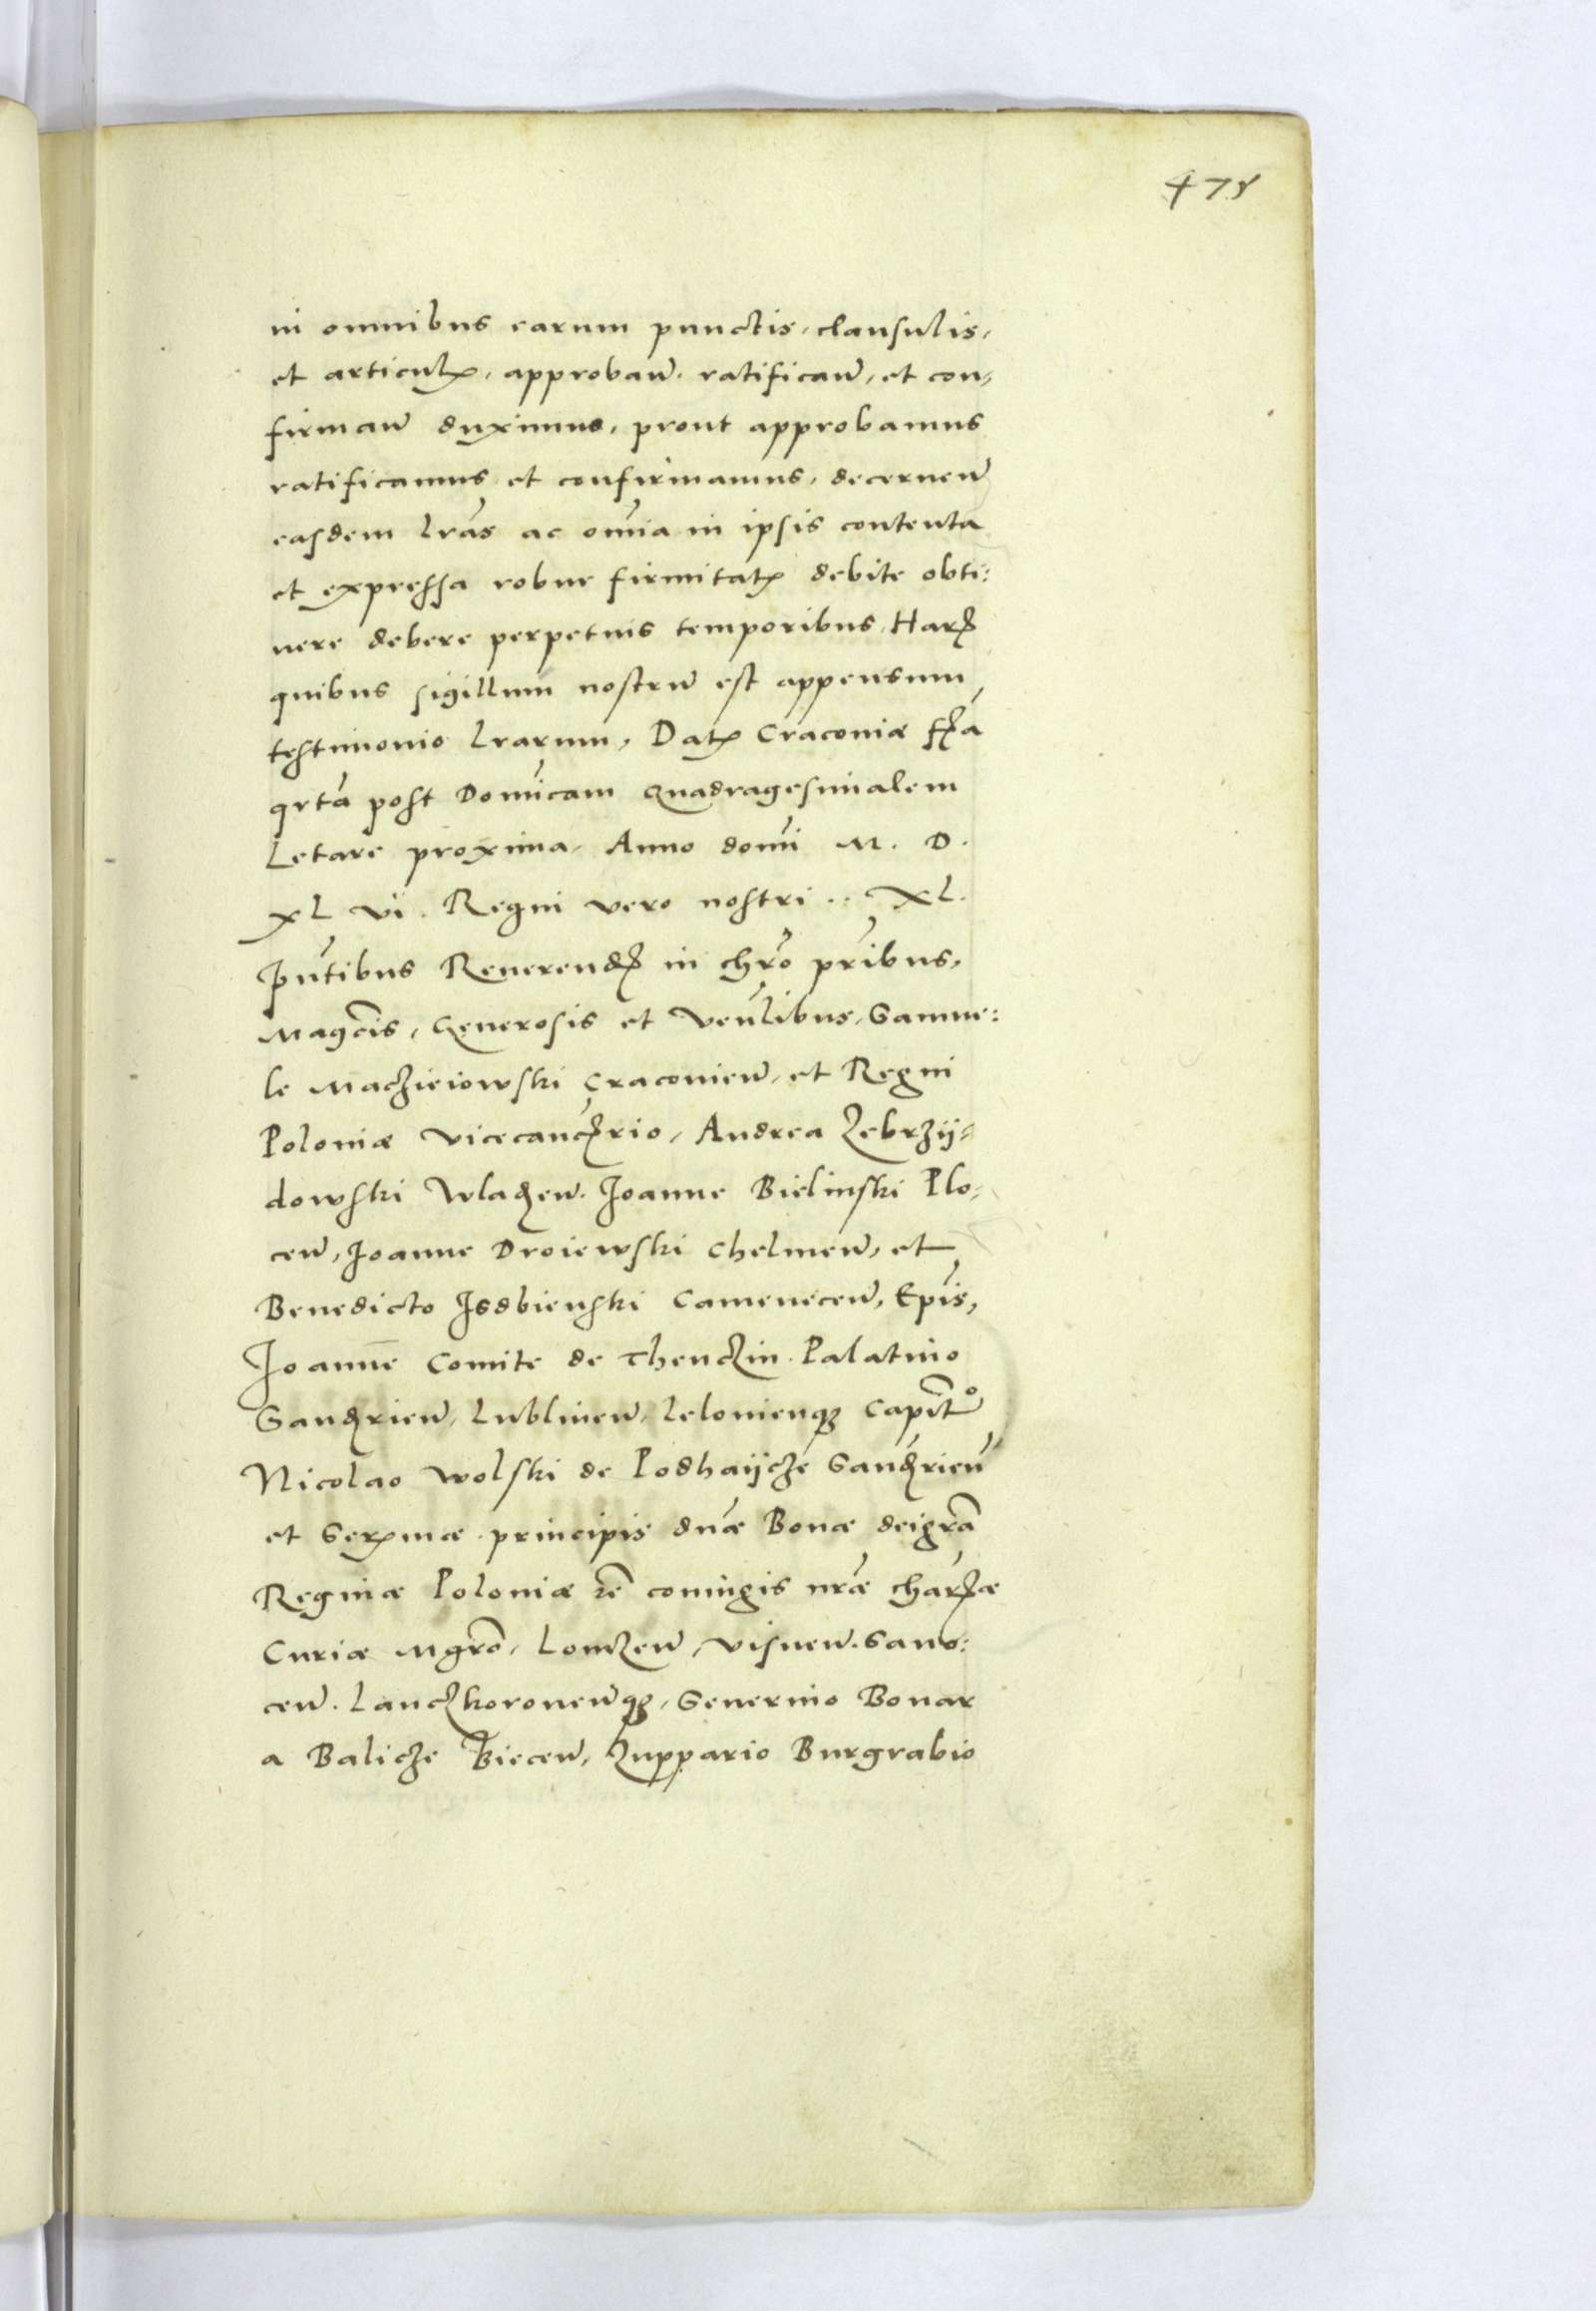 478
in omnibus earum punctis, clausulis,
et articulꝭ, approbañ. ratificañ, et con,
firmañ duximus, prout approbamus
ratificamus et confirmamus, decerneñ
easdem lr̃as ac om̃ia in ipsis contenta
et expressa robur firmitatꝭ debite obti:
nere debere perpetuis temporibus. Harꝝ
quibus sigillum nostrũ est appensum
testimonio lrarum, Datꝭ Craconiæ fꝝa
qrta post Domĩcam quadragesimalem
Letare proxima, Anno domĩ M. D.
XL VI. Regni vero nostri .. XL.
Pñtibus Reverendꝭ in chr̃o pr̃ibus,
Magcĩs, Generosis et Veñlibus, Samue:
le Macziejowski Craconieñ, et Regni
Poloniæ vicecancꝝrio, Andrea Zebrzÿ=
dowski Wladꝝeñ. Joanne Bielinski Plo,
ceñ, Joanne Droiewski Chelmeñ, et
Benedicto Jsdbienski Cameneceñ, Epĩs,
Joanne Comite de Thenczin. Palatino
Sandꝝrieñ, Lublineñ, Lelonienqꝫ Capitº
Nicolao Wolski de Podhaÿcze Sandꝝrieñ
et Serꝭmæ principis dñæ Bonæ dei gr̃a
Reginæ Poloniæ rẽ coniugis nr̃æ charꝭæ
Curiæ Mgr̃o, Lomzeñ, Visneñ. Sano:
ceñ. Lanczkoroneñqꝫ, Severino Bonar
a Balicze Bieceñ, Zuppario Burgrabio